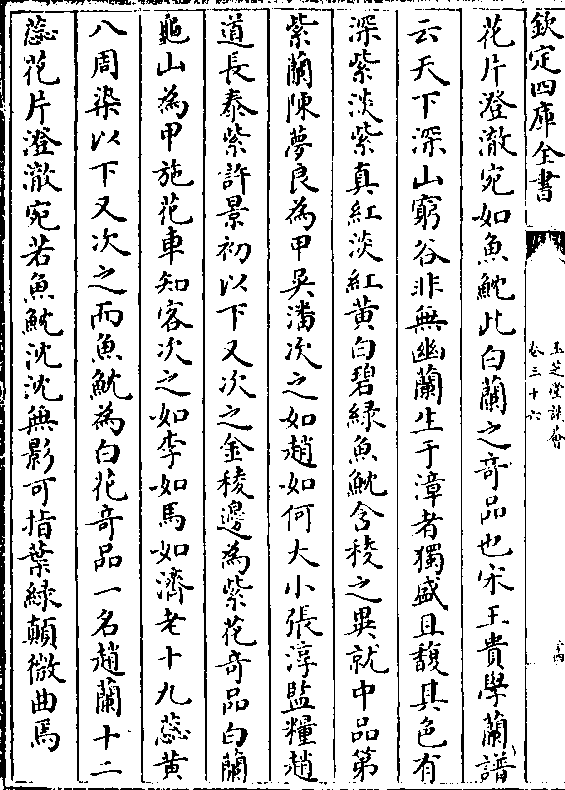 欽定四庫全書
玉芝堂談薈
卷三十六
花片澄澈宛如魚魫此白蘭之奇品也宋王貴學蘭譜
云天下深山窮谷非無幽蘭生于漳者獨盛且馥其色有
深紫淡紫真紅淡紅黄白碧緑魚魫金稜之異就中品第
紫蘭陳夢良為甲吳潘次之如趙如何大小張淳監糧趙
道長泰紫許景初以下又次之金稜邊為紫花奇品白蘭
龜山為甲施花車知客次之如李如馬如濟老十九蕊黄
八周染以下又次之而魚魫為白花奇品一名趙蘭十二
蕊花片澄澈宛若魚魫沈沈無影可指葉緑顛微曲焉